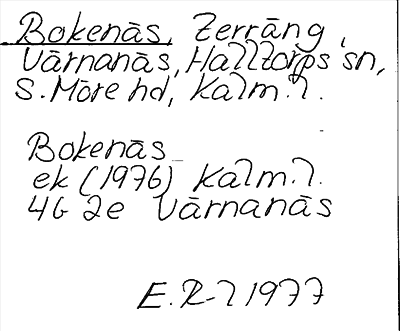 Bokenäs, Zerräng,
Värnanäs, Halltorps sn,
S. Möre hd, Kalm. l.
Bokenäs
ek (1976) Kalm. l.
4G 2e Värnanäs
E. R-l 1977